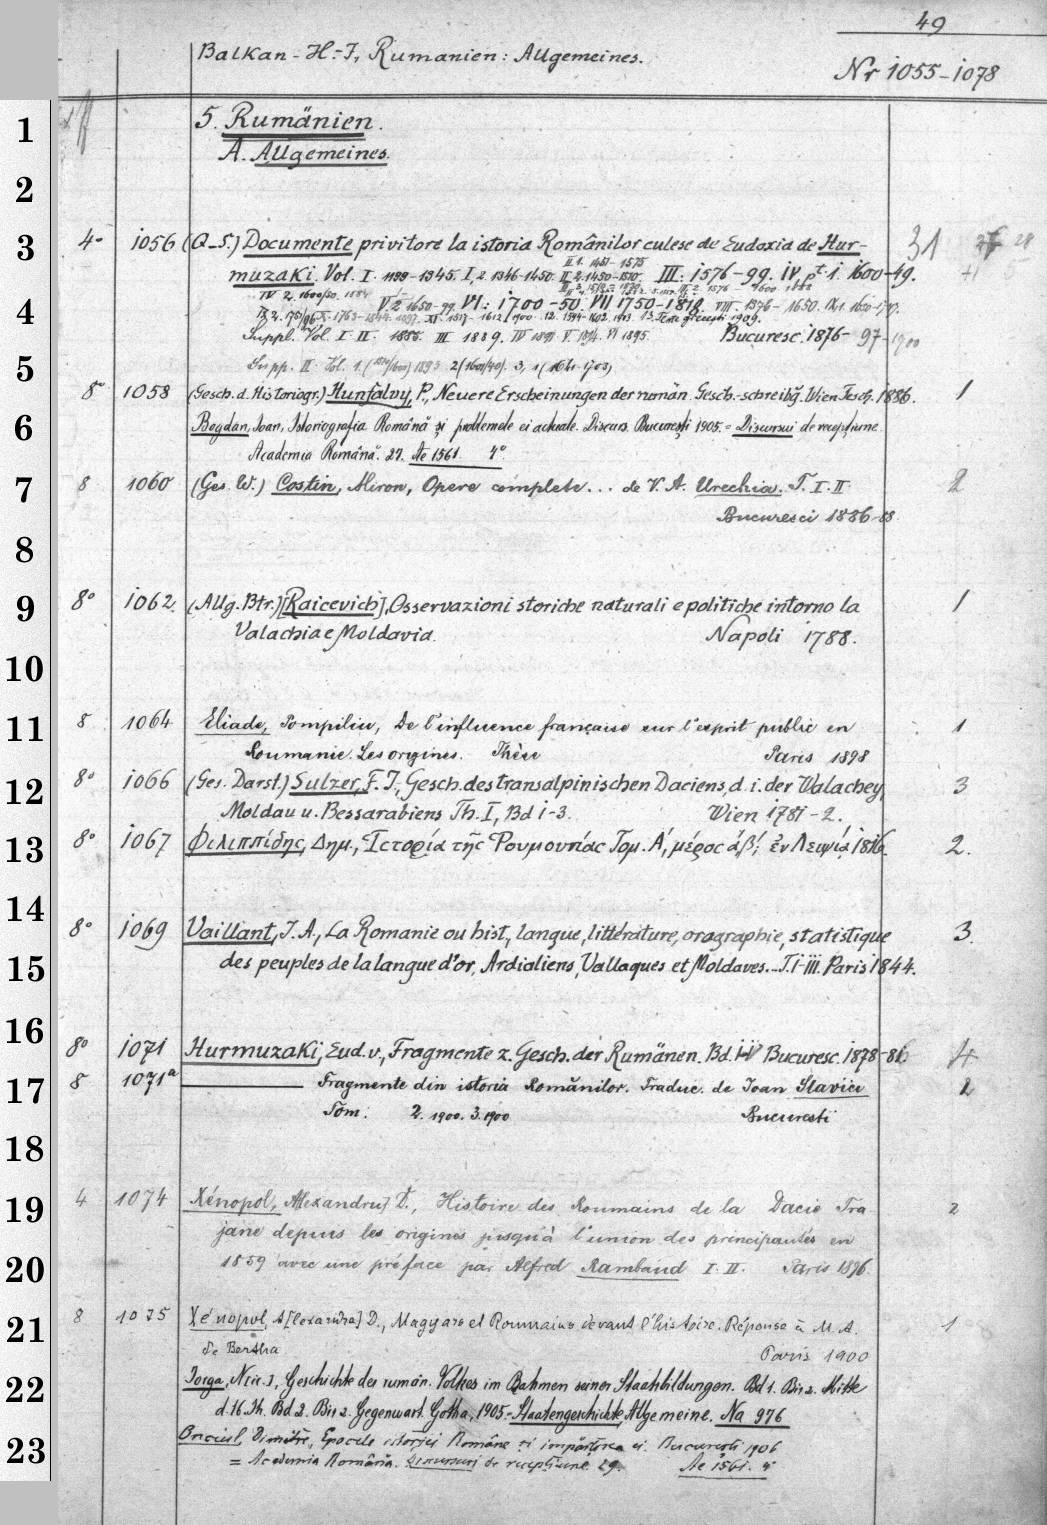 49
Balkan-H.-I, Rumanien: Allgemeines.
Nr 1055-1078
1
5. Rumänien.
A. Allgemeines.
2
3
4° 1056 (Q-S.) Documente privitore la istoria Românilor culese de Eudoxia de Hur- 31 28
II 1. 1451-1575
muzaki. Vol. I. 1199-1345. I,2. 1346-1450. II 2. 1450-1510. III: 1576-99. IV, pt. 1. 1600-49.
4
V.2 1650-99. VI: 1700-50. VII 1750-1818. VIII. 1376-1650. IX,1 1650-1747.
Suppl. Vol. I. II. 1886. III 1889. IV 1891 V. 1894. VI 1895. Bucuresc. 1876-97-1900
5
Supp. II. Vol. 1. 1893 2(1601/40). 3,1 (1641-1703)
8° 1058 (Gesch. d. Historiogr.) Hunfalvy, P., Neuere Erscheinungen der român. Gesch.-schreibg. Wien Tesch. 1886. 1
6
Bogdan, Ioan, Istoriografia Română și problemele ei actuale. Discurs. București 1905. = Discursui de recepțiune.
Academia Română. 27. Ae 1561 4°
7
8 1060 (Ges. W.) Costin, Miron, Opere complete... de V. A. Urechia. T. I. II 2
Bucuresci 1886-88
8
9
8° 1062. (Allg. Btr.) [Raicevich], Osservazioni storiche naturali e politiche intorno la 1
Valachia e Moldavia. Napoli 1788.
10
11
8 1064 Eliade, Pompiliu, De l'influence française sur l'esprit public en 1
Roumanie. Les origines. Thèse Paris 1898
12
8° 1066 (Ges. Darst.) Sulzer, F. J., Gesch. des transalpinischen Daciens, d. i. der Walachey, 3
Moldau u. Bessarabiens Th. I, Bd 1-3. Wien 1781-2.
13
8° 1067 Φιλιππίδης, Δημ., Ἱστορία τῆς Ῥουμουνίας Τομ. Α΄, μέρος ά, β΄, ἐν Λειψίᾳ 1816. 2.
14
8° 1069 Vaillant, J. A., La Romanie ou hist., langue, littérature, orographie, statistique 3.
15
des peuples de la langue d'or, Ardialiens, Vallaques et Moldaves... T. I-III. Paris 1844.
16
8° 1071 Hurmuzaki, Eud. v., Fragmente z. Gesch. der Rumänen. Bd. I-V Bucuresc. 1878-86 4
17
8 1071a Fragmente din istoria Românilor. Traduc. de Ioan Slavici 2
Tom. 2. 1900. 3. 1900 Bucuresti
18
19
4 1074 Xénopol, A[lexandru] D., Histoire des Roumains de la Dacie Tra 2
jane depuis les origines jusqu'à l'union des principautés en
20
1859 avec une préface par Alfred Rambaud I. II. Paris 1896.
21
8 1075 Xénopol, A[lexandra] D., Magyars et Roumains devant l'histoire. Réponse à M. A. 1
de Bertha Paris 1900
22
Jorga, N[ic.], Geschichte des rumän. Volkes im Rahmen seiner Staatsbildungen. Bd 1. Bis z. Mitte
d. 16. Jh. Bd 2. Bis z. Gegenwart. Gotha, 1905. = Staatengeschichte, Allgemeine. Na 976
23
Onciul, Dimitre, Epocele istoriei Române și împărțirea ei. București 1906
= Academia Română. Discursuri de recepțiune 29. Ae 1561. 4°